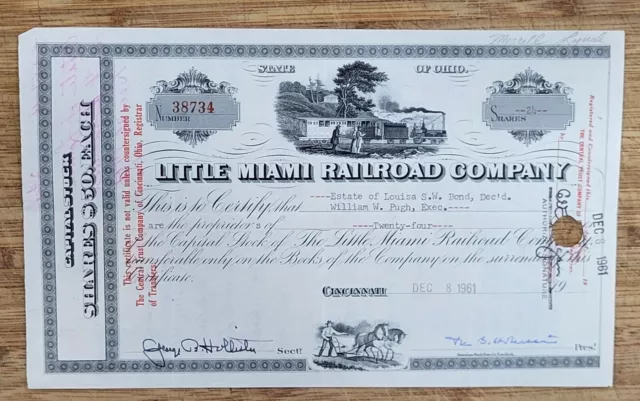 Merrill Lynch
STATE OF OHIO.
38734
NUMBER
--24--
SHARES
LITTLE MIAMI RAILROAD COMPANY
This is to Certify, that ----Estate of Louisa S.W. Bond, Dec'd.
William W. Pugh, Exec.----
are the proprietor's of ----Twenty-four----
the Capital Stock of The Little Miami Railroad
transferable only on the Books of the Company on the surrender of this
Certificate.
CINCINNATI DEC 8 1961 19
Sect!
Pres!
CAPITAL STOCK
SHARES $50. EACH
This certificate is not valid unless countersigned by
The Central Trust Company of Cincinnati, Ohio, Registrar
of Transfers.
Registered and Countersigned this
THE CENTRAL TRUST COMPANY
AUTHORIZED SIGNATURE
DEC 8 1961